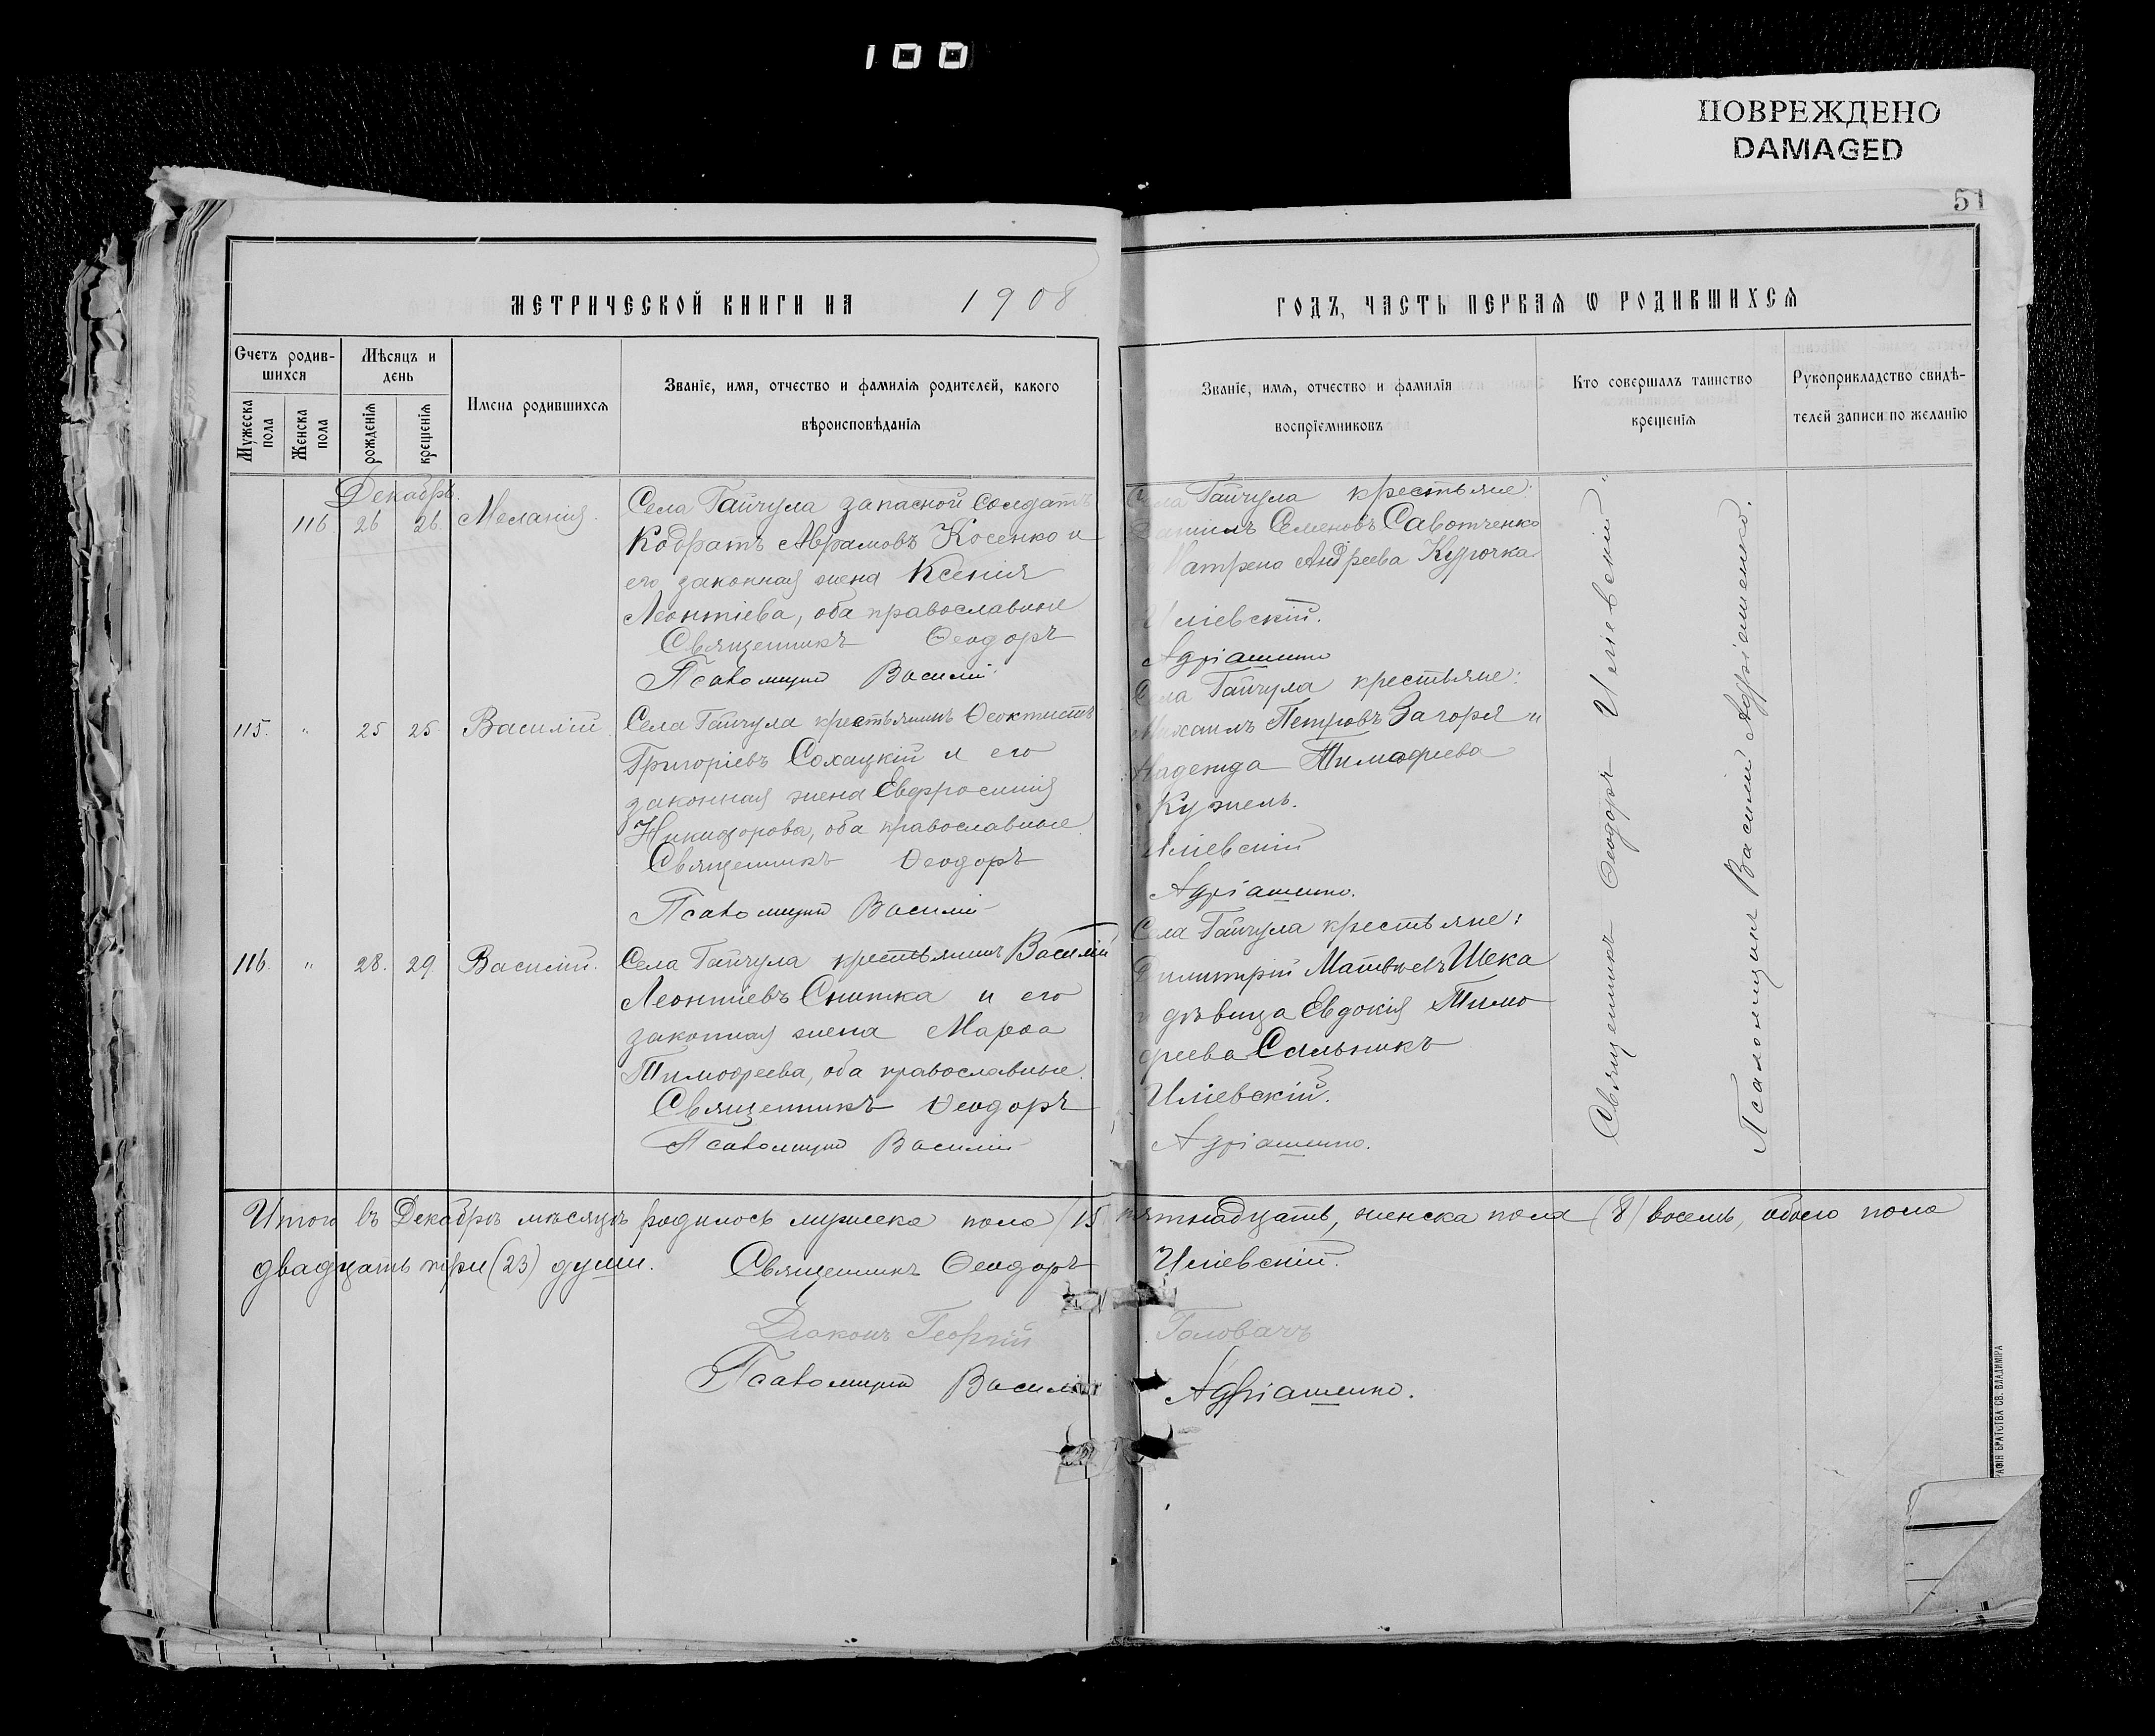 100
ПОВРЕЖДЕНО
DAMAGED
51
МЕТРИЧЕСКОЙ КНИГИ НА 1908
ГОДЪ, ЧАСТЬ ПЕРВАЯ Ѡ РОДИВШИХСЯ
Счетъ родив-
шихся
Мужеска пола
Женска пола
Мѣсяцъ и
день
рожденія
крещенія
Имена родившихся
Званіе, имя, отчество и фамилія родителей, какого
вѣроисповѣданія
Званіе, имя, отчество и фамилія
воспріемниковъ
Кто совершалъ таинство
крещенія
Рукоприкладство свидѣ-
телей записи по желанію
Декабрь.
116 26 26. Меланія.
Села Гайчула запасной солдатъ
Кодратъ Аврамовъ Косенко и
его законная жена Ксенія
Леонтіева, оба православные
Священникъ Ѳеодоръ
Псаломщикъ Василій
Села Гайчула крестьяне:
Даніилъ Семеновъ Савотченко
Натрена Андреева Курочка
Иліевскій.
Адріашенко
115. " 25 25. Василій.
Села Гайчула крестьянинъ Ѳеоктистъ
Григоріевъ Сохацкій и его
законная жена Евфросинія
Никифорова, оба православные
Священникъ Ѳеодоръ
Псаломщикъ Василій
Села Гайчула крестьяне:
Михаилъ Петровъ Загоря и
Надежда Тимофеева
Кужель.
Иліевскій
Адріашенко.
116. " 28. 29. Василій.
Села Гайчула крестьянинъ Василій
Леонтіевъ Снитка и его
законная жена Марѳа
Тимофеева, оба православные.
Священникъ Ѳеодоръ
Псаломщикъ Василій
Села Гайчула крестьяне:
Димитрій Матвѣевъ Шека
и дѣвица Евдокія Тимо
феева Сальникъ
Иліевскій.
Адріашенко.
Священникъ Ѳеодоръ Иліевскій
Псаломщикъ Василій Адріашенко.
Итого въ Декабрѣ мѣсяцѣ родилось мужеска пола (15 пятнадцать, женска пола (8) восемь, обоего пола
двадцать три (23) души. Священникъ Ѳеодоръ Иліевскій.
Діаконъ Георгій Головачъ
Псаломщикъ Василій Адріашенко.
БРАТСТВА СВ. ВЛАДИМІРА